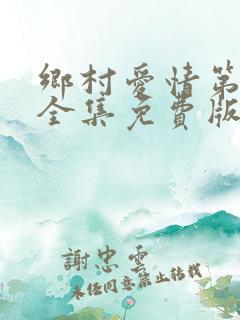 鄉村愛情第
全集免費版
謝忠雲
未任同意禁止轉載